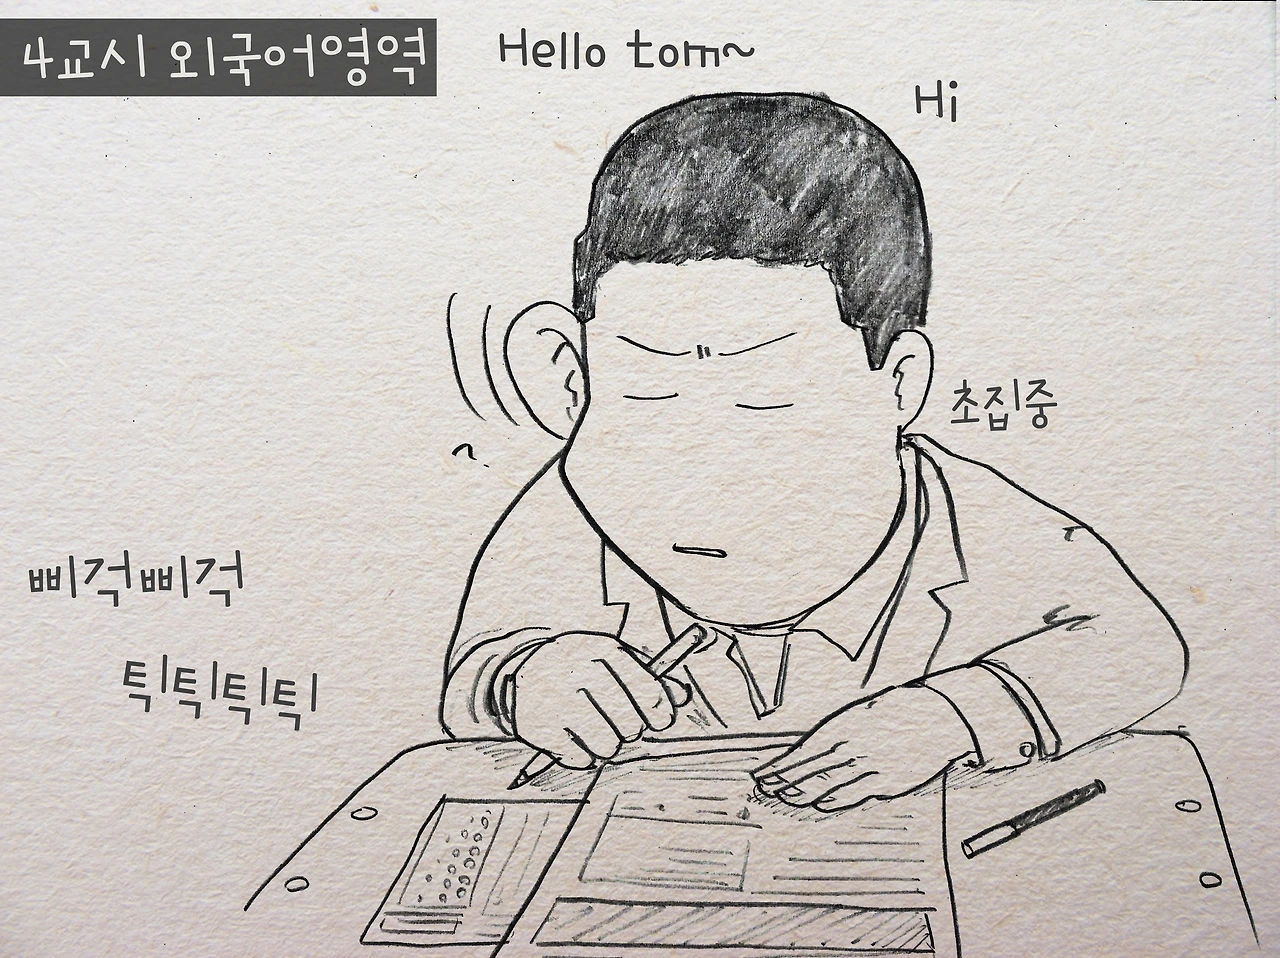 4교시 외국어영역
Hello tom~
Hi
초집중
삐걱삐걱
틱틱틱틱